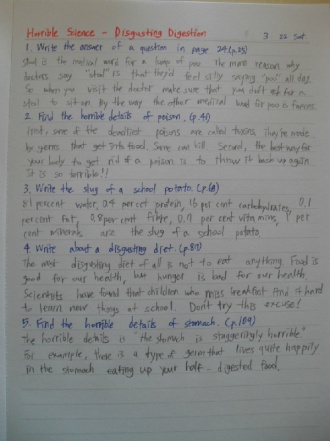 Horrible Science - Disgusting Digestion 3 22 Sat
1. Write the answer of a question in page 24. (p.25)
Stool is the medical word for a lump of poo. The main reason why
doctors say "stool" is that they'd feel silly saying "poo" all day.
So when you visit the doctor make sure that you don't ask for a
stool to sit on. By the way the other medical word for poo is faeces.
2. Find the horrible details of poison. (p.41)
First, some of the deadliest poisons are called toxins. They're made
by germs that get into food. Some can kill. Second, the best way for
your body to get rid of a poison is to throw it back up again
It is so terrible!!
3. Write the slug of a school potato. (p.68)
81 percent water, 0.4 percent protein, 16 per cent carbohydrates, 0.1
percent fat, 0.8 per cent fibre, 0.7 per cent vitamins, per
cent minerals are the slug of a school potato.
4. Write about a disgusting diet. (p.87)
The most disgusting diet of all is not to eat anything. Food is
good for our health, but hunger is bad for our health
Scientists have found that children who miss breakfast find it hard
to learn new things at school. Don't try this excuse!
5. Find the horrible details of stomach. (p.109)
The horrible details is "the stomach is staggeringly horrible"
For example, there is a type of germ that lives quite happily
in the stomach eating up your half-digested food.